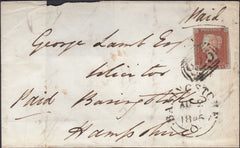 Paid
George Lamb Esq
Solicitor
Paid Basingstoke
Hampshire
BASINGSTOKE